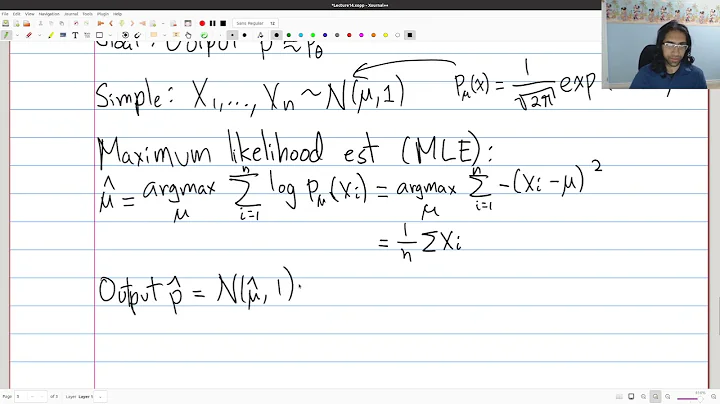 *Lecture14.xopp - Xournal++
File Edit View Navigation Journal Tools Plugin Help
Sans Regular 12
Goal: Output p̂ ≈ pθ
Simple: X₁, ..., Xₙ ~ N(μ, 1) p_μ(x) = 1/√2π exp(
Maximum likelihood est (MLE):
μ̂ = argmax_μ Σ_{i=1}^{n} log p_μ(Xi) = argmax_μ Σ_{i=1}^{n} -(Xi - μ)²
= 1/n ΣXi
Output p̂ = N(μ̂, 1).
Layer Layer 1